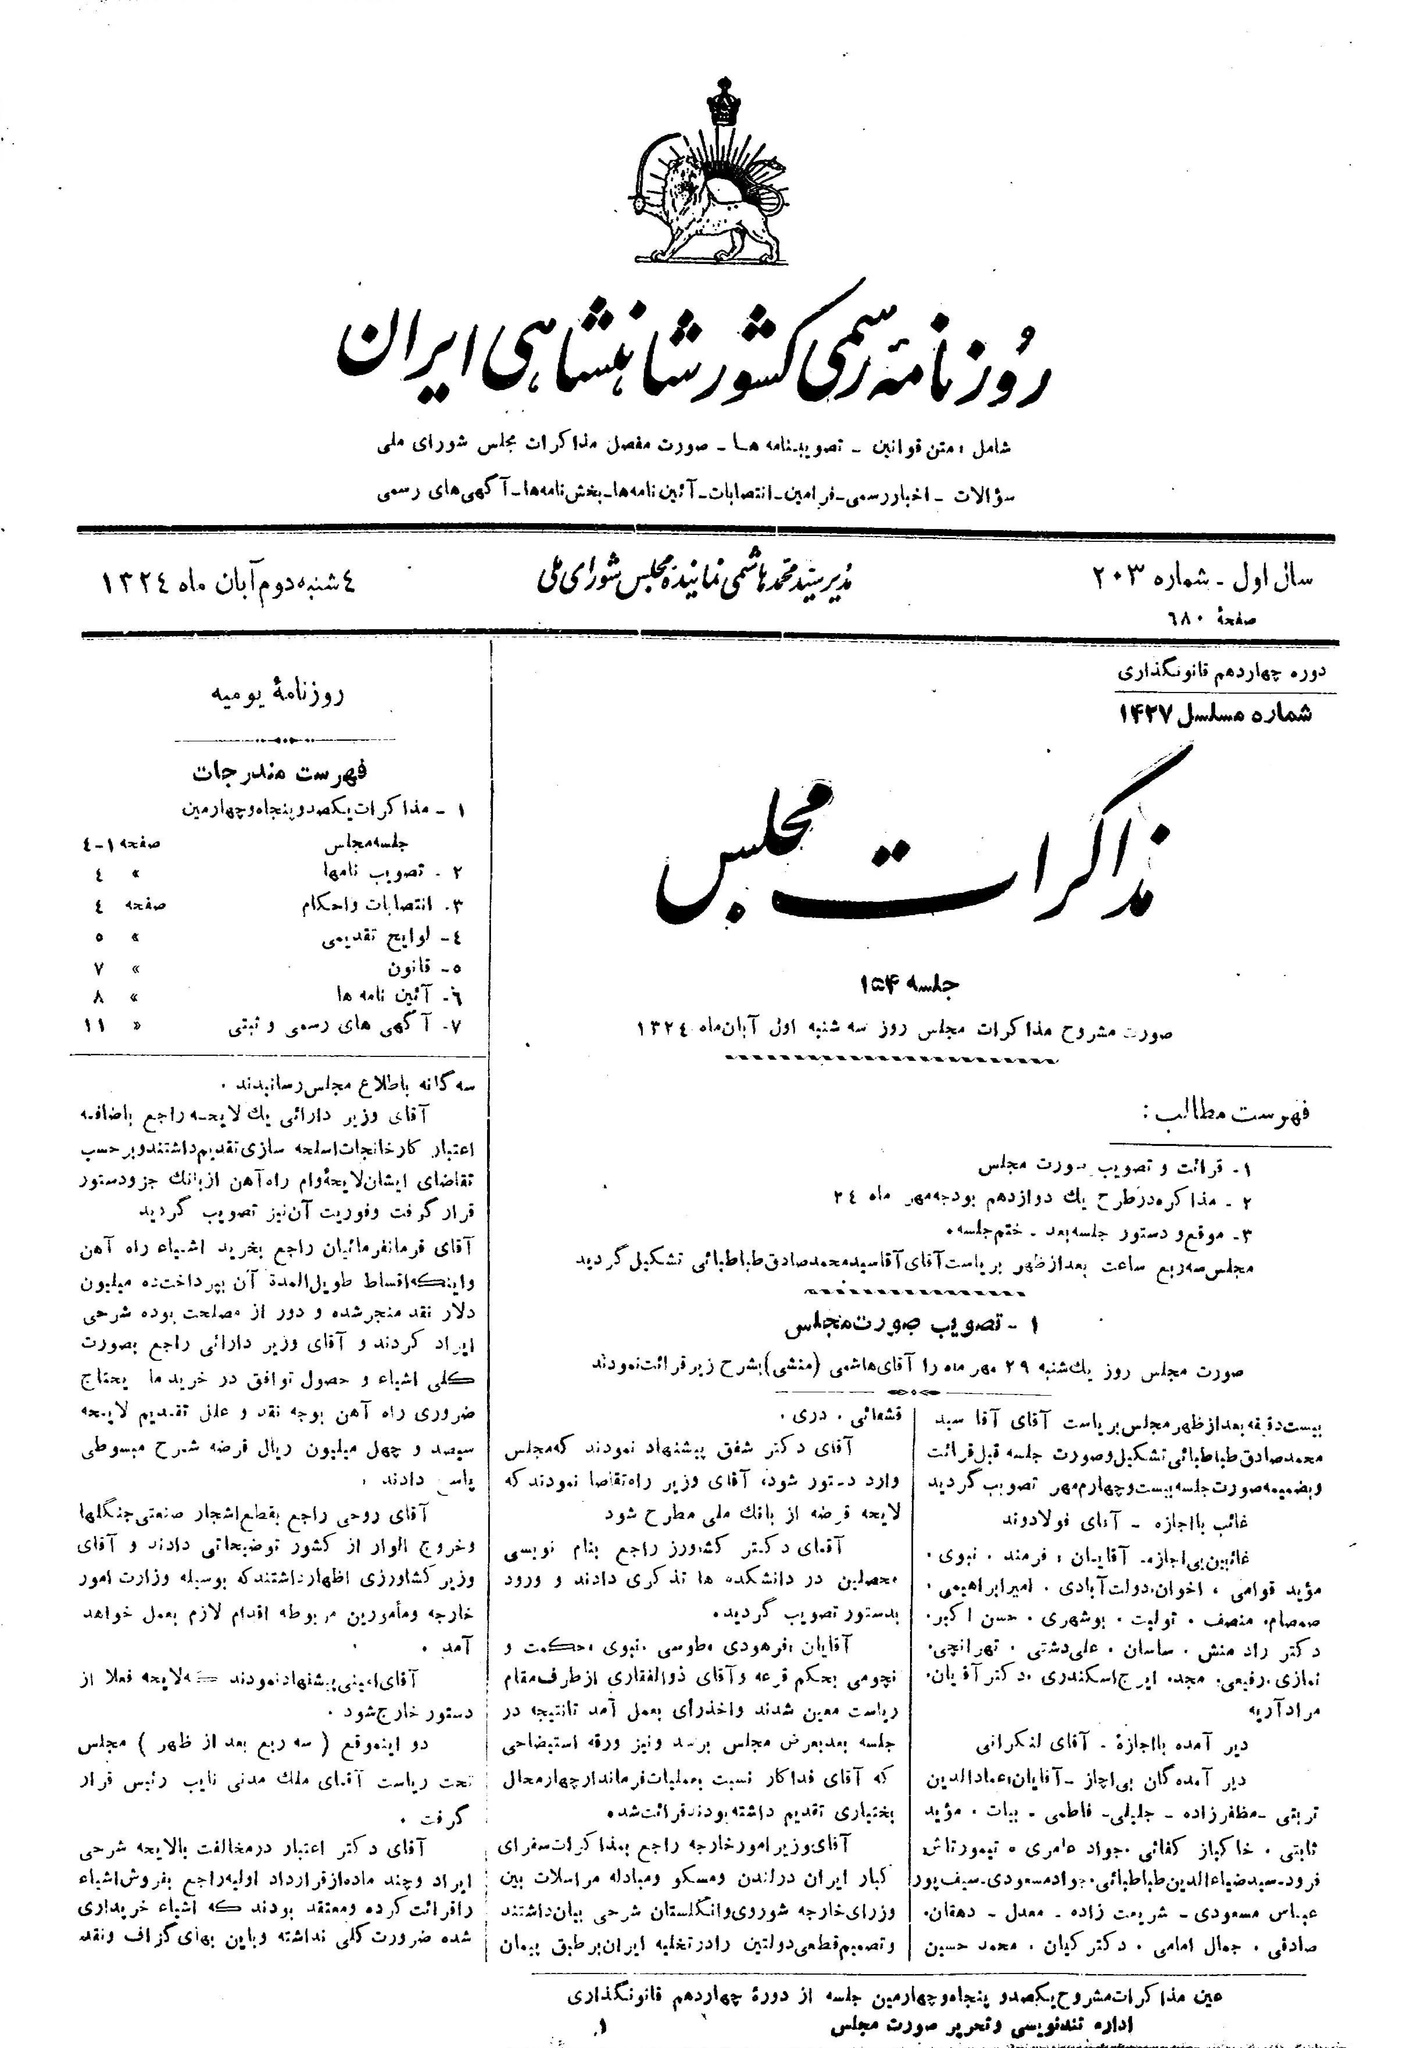 روزنامهٔ رسمی کشور شاهنشاهی ایران
شامل : متن قوانین - تصویبنامه ها - صورت مفصل مذاکرات مجلس شورای ملی
سؤالات - اخبار رسمی - فرامین - انتصابات - آئین نامه‌ها - بخش نامه‌ها - آگهی‌های رسمی
سال اول - شماره ۲۰۳
صفحهٔ ۶۸۰
مدیر سید محمد هاشمی نماینده مجلس شورای ملی
۴ شنبه دوم آبان ماه ۱۳۲۴
دوره چهاردهم قانونگذاری
شماره مسلسل ۱۴۲۷
مذاکرات مجلس
جلسه ۱۵۴
صورت مشروح مذاکرات مجلس روز سه شنبه اول آبان ماه ۱۳۲۴
فهرست مطالب :
۱- قرائت و تصویب صورت مجلس
۲ - مذاکره در طرح یك دوازدهم بودجه مهر ماه ۲۴
۳- موقع و دستور جلسه بعد - ختم جلسه .
مجلس سه ربع ساعت بعد از ظهر بریاست آقای آقا سید محمد صادق طباطبائی تشکیل گردید
۱ - تصویب صورت مجلس
صورت مجلس روز یك شنبه ۲۹ مهر ماه را آقای هاشمی (منشی) بشرح زیر قرائت نمودند
بیست دقیقه بعد از ظهر مجلس بریاست آقای آقا سید
محمد صادق طباطبائی تشکیل و صورت جلسه قبل قرائت
و بضمیمه صورت جلسه بیست و چهارم مهر تصویب گردید
غائب با اجازه - آقای فولادوند
غائبین بی اجازه- آقایان : فرمند . نبوی .
مؤید قوامی . اخوان . دولت آبادی . امیر ابراهیمی .
صمصام . منصف . تولیت . بوشهری . حسن اکبر .
دکتر راد منش . ساسان . علی دشتی . تهرانچی .
نمازی . رفیعی . مجد . ایرج اسکندری . دکتر آقایان .
مراد آریه
دیر آمده با اجازه - آقای لنکرانی
دیر آمده گان بی اجاز - آقایان : عماد الدین
تربتی - مظفر زاده - جلیلی - فاطمی - بیات . مؤید
ثابتی . خاکباز کفائی . جواد عامری . تیمورتاش
فرود - سید ضیاء الدین طباطبائی . جواد مسعودی - سیف پور
عباس مسعودی - شریعت زاده - معدل - دهقان .
صادقی . جمال امامی . دکتر کیان . محمد حسین
قشقائی . دری .
آقای دکتر شفق پیشنهاد نمودند که مجلس
وارد دستور شود، آقای وزیر راه تقاضا نمودند که
لایحه قرضه از بانك ملی مطرح شود
آقای دکتر کشاورز راجع بنام نویسی
محصلین در دانشکده ها تذکری دادند و ورود
بدستور تصویب گردید .
آقایان : فرهودی . طوسی . نبوی . حکمت و
نجومی بحکم قرعه و آقای ذوالفقاری از طرف مقام
ریاست معین شدند و اخذ رأی بعمل آمد تا نتیجه در
جلسه بعد بعرض مجلس برسد و نیز ورقه استیضاحی
که آقای فداکار نسبت بعملیات فرماندار چهار محال
بختیاری تقدیم داشته بودند قرائت شد
آقای وزیر امور خارجه راجع بمذاکرات سفرای
کبار ایران در لندن و مسکو و مبادله مراسلات بین
وزرای خارجه شوروی و انگلستان شرحی بیان داشتند
و تصمیم قطعی دولتین را در تخلیه ایران بر طبق پیمان
روزنامهٔ یومیه
فهرست مندرجات
۱ - مذاکرات یکصد و پنجاه و چهارمین
جلسه مجلس صفحه ۱-۴
۲ - تصویب نامها » ۴
۳- انتصابات و احکام صفحه ۴
۴- لوایح تقدیمی » ۵
۵- قانون » ۷
۶- آئین نامه ها » ۸
۷- آگهی های رسمی و ثبتی » ۱۱
سه گانه باطلاع مجلس رسانیدند .
آقای وزیر دارائی یك لایحه راجع باضافه
اعتبار کارخانجات اسلحه سازی تقدیم داشتند و بر حسب
تقاضای ایشان لایحه وام راه آهن از بانك جزو دستور
قرار گرفت و فوریت آن نیز تصویب گردید
آقای فرمانفرمائیان راجع بخرید اشیاء راه آهن
و اینکه اقساط طویل المدة آن بپرداخت ده میلیون
دلار نقد منجر شده و دور از مصلحت بوده شرحی
ایراد کردند و آقای وزیر دارائی راجع بصورت
کلی اشیاء و حصول توافق در خرید ما یحتاج
ضروری راه آهن بوجه نقد و علل تقدیم لایحه
سیصد و چهل میلیون ریال قرضه شرح مبسوطی
پاسخ دادند .
آقای روحی راجع بقطع اشجار صنعتی جنگلها
و خروج الوار از کشور توضیحاتی دادند و آقای
وزیر کشاورزی اظهار داشتند که بوسیله وزارت امور
خارجه و مأمورین مربوطه اقدام لازم بعمل خواهد
آمد .
آقای امینی پیشنهاد نمودند که لایحه فعلا از
دستور خارج شود .
دو اینموقع ( سه ربع بعد از ظهر ) مجلس
تحت ریاست آقای ملك مدنی نایب رئیس قرار
گرفت .
آقای دکتر اعتبار در مخالفت بالایحه شرحی
ایراد و چند ماده از قرارداد اولیه راجع بفروش اشیاء
را قرائت کرده و معتقد بودند که اشیاء خریداری
شده ضرورت کلی نداشته و باین بهای گزاف و نقد
عین مذاکرات مشروح یکصد و پنجاه و چهارمین جلسه از دورهٔ چهاردهم قانونگذاری
اداره تندنویسی و تحریر صورت مجلس
۱